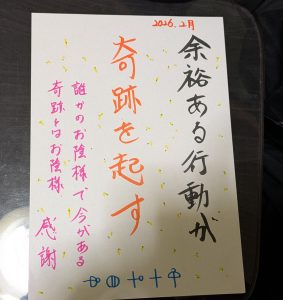 2026.2月
余裕ある行動が
奇跡を起す
誰かのお陰様で今がある
奇跡とはお陰様
感謝